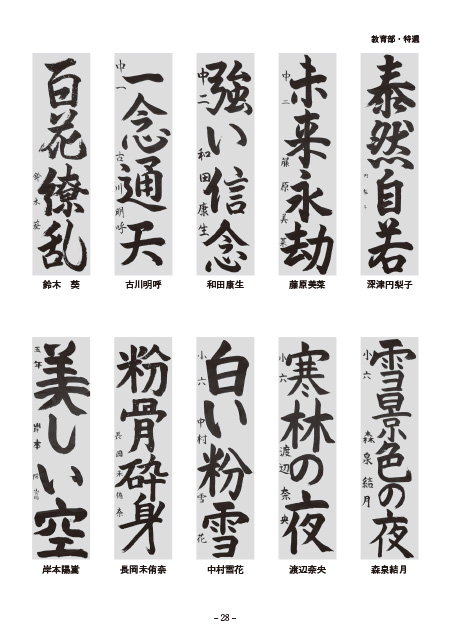 教育部・特選
泰然自若
深津円梨子
未来永劫
中二 藤原美菜
藤原美菜
強い信念
中二 和田康生
和田康生
一念通天
中一 古川明呼
古川明呼
百花繚乱
鈴木葵
鈴木 葵
雪景色の夜
小六 森泉結月
森泉結月
寒林の夜
小六 渡辺奈央
渡辺奈央
白い粉雪
小六 中村雪花
中村雪花
粉骨砕身
長岡未侑奈
長岡未侑奈
美しい空
五年 岸本
岸本陽
– 28 –